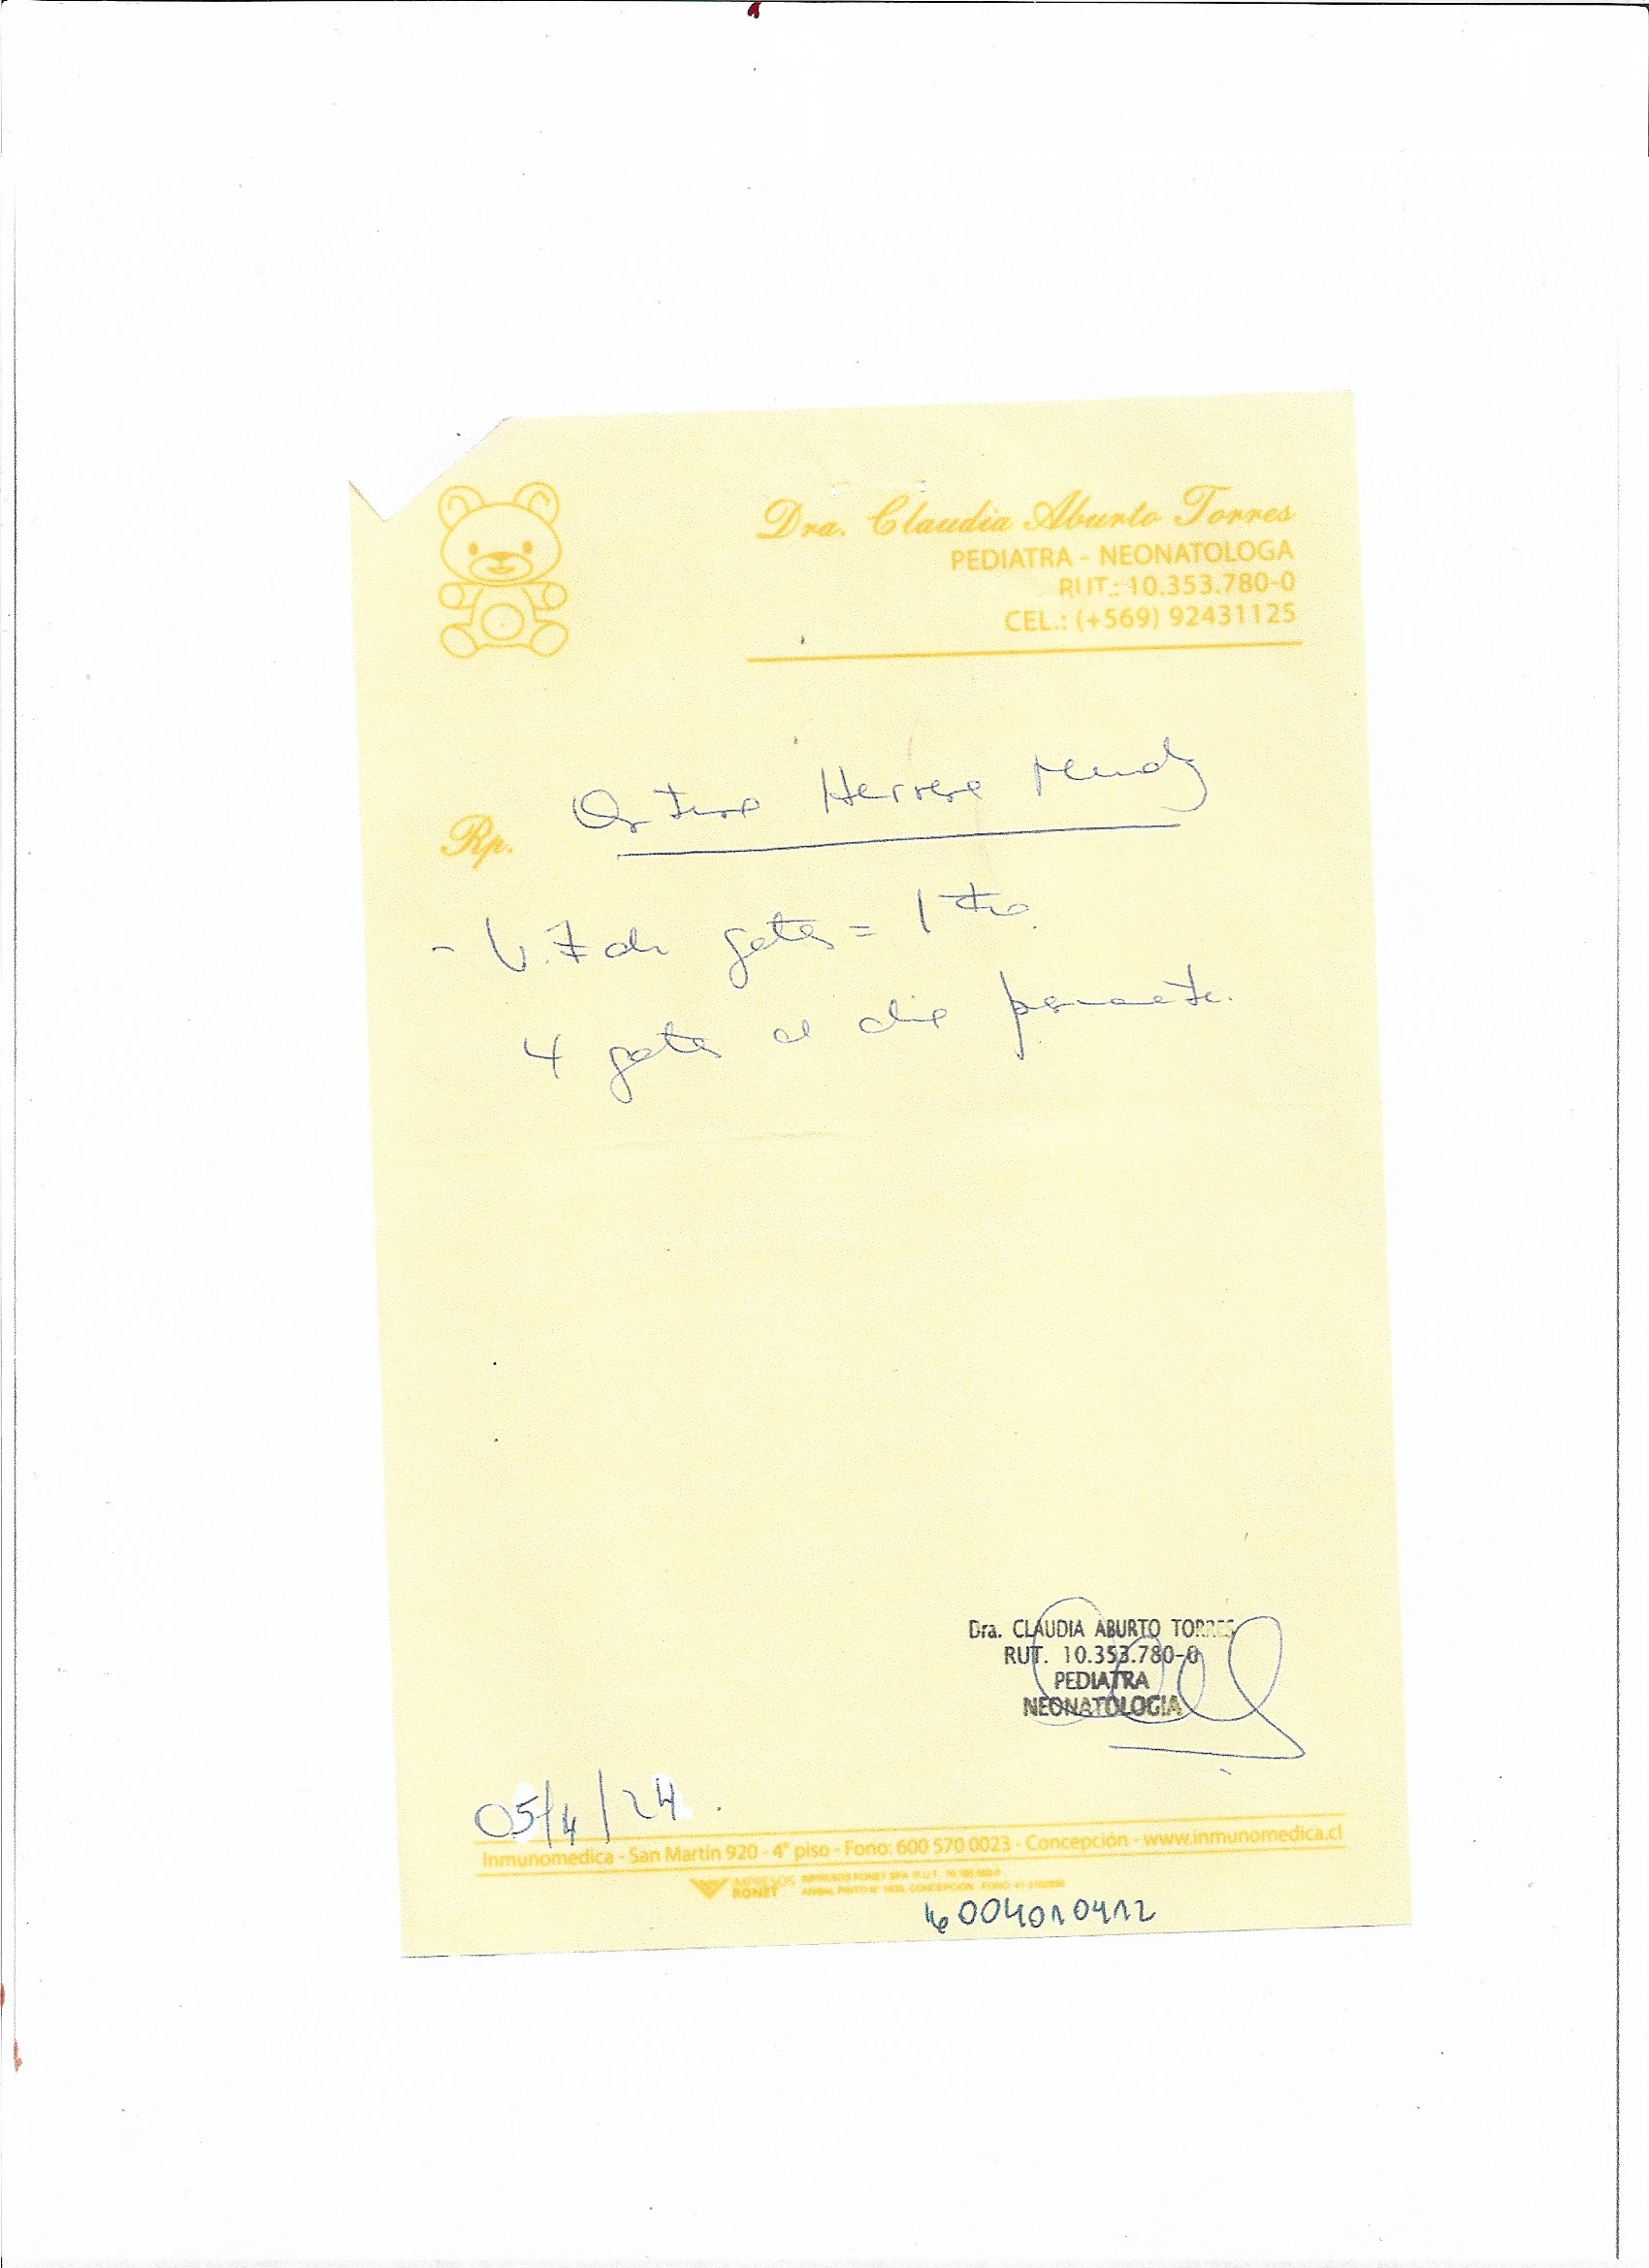 Dra. Claudia Aburto Torres
PEDIATRA - NEONATOLOGA
RUT.: 10.353.780-0
CEL.: (+569) 92431125
Herrera
Rp.
gotas = 1
4 gotas al dia
Dra. CLAUDIA ABURTO TORRES
RUT. 10.353.780-0
PEDIATRA
NEONATOLOGIA
05/4/24.
Inmunomedica - San Martín 920 - 4° piso - Fono: 600 570 0023 - Concepción - www.inmunomedica.cl
IMPRESOS
RONET